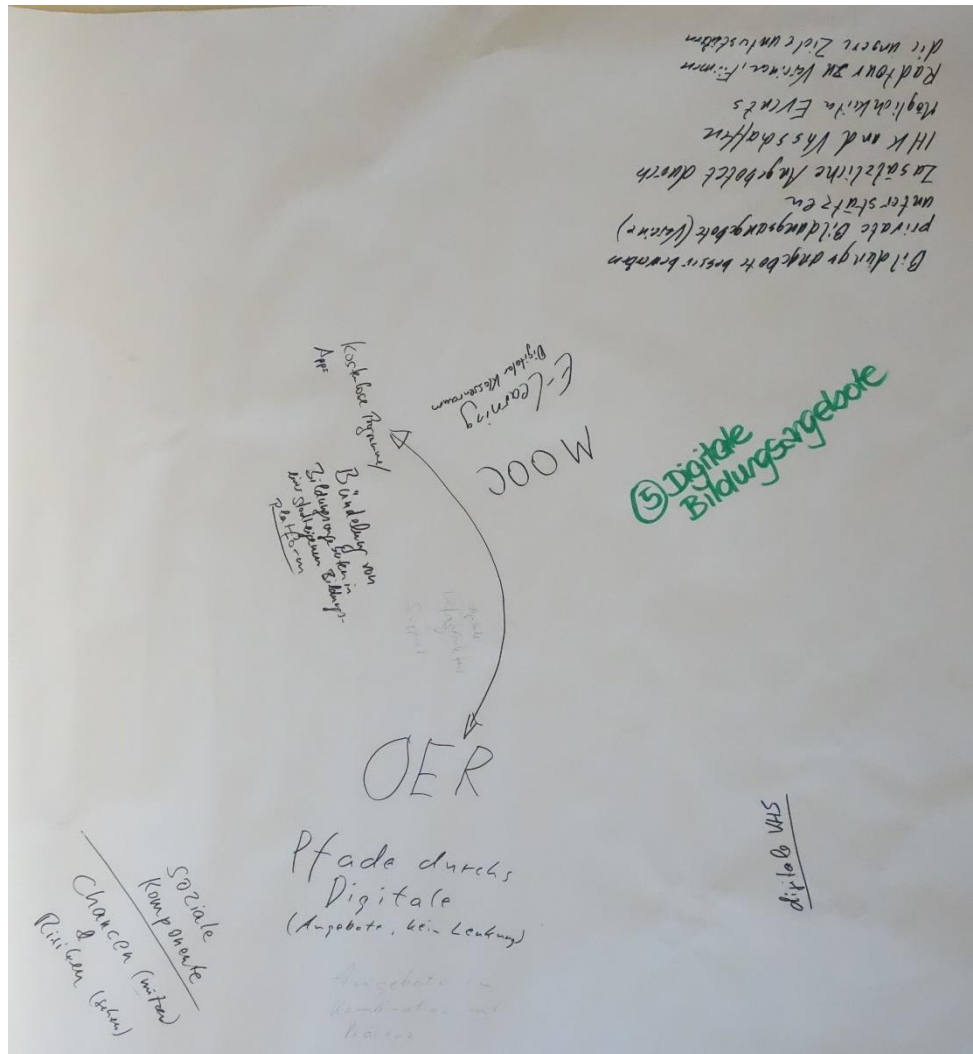 Bildungsangebote besser bewerben
private Bildungsangebote (Vereine)
unterstützen
Zusätzliche Angebotet durch
IHK und Vhs schaffen
Möglichkeita Events
Radtour zu Vereinen, Firmen
die unsere Ziele unterstützen
⑤ Digitale
Bildungsangebote
MOOC
E-Learning
Digitaler Klassenraum
Kostenlose Programme/
Apps
Bündelung von
Bildungsangeboten in
einer stadteigenen Bildungs-
plattform
OER
Pfade durchs
Digitale
(Angebote, kein Lenkung)
Angebote in
Kombination mit
digitale VHS
Soziale
Komponente
Chancen (nutzen)
&
Risiken (sehen)